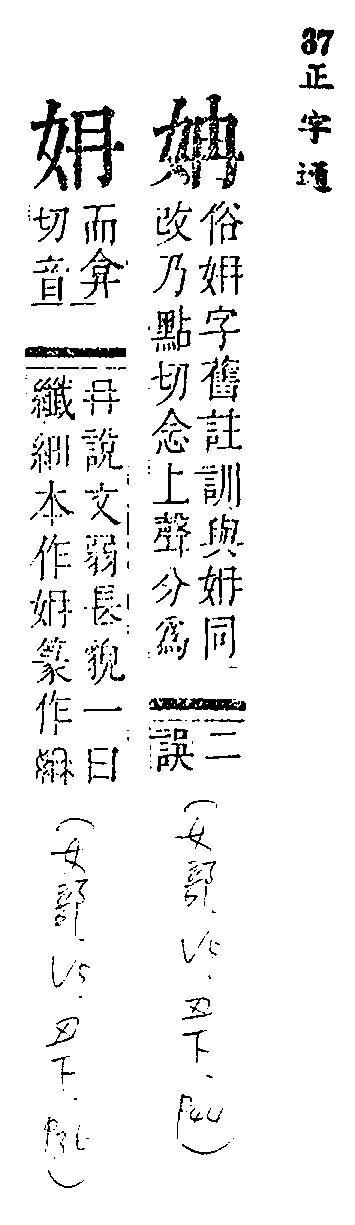 37正字通
俗姌字舊註訓與姌同
改乃點切念上聲分爲
二
誤
(女部.V5.丑下.P44)
姌
而弇
切音
冉說文弱長貌一曰
纖細本作姌篆作
(女部.V5.丑下.P36)